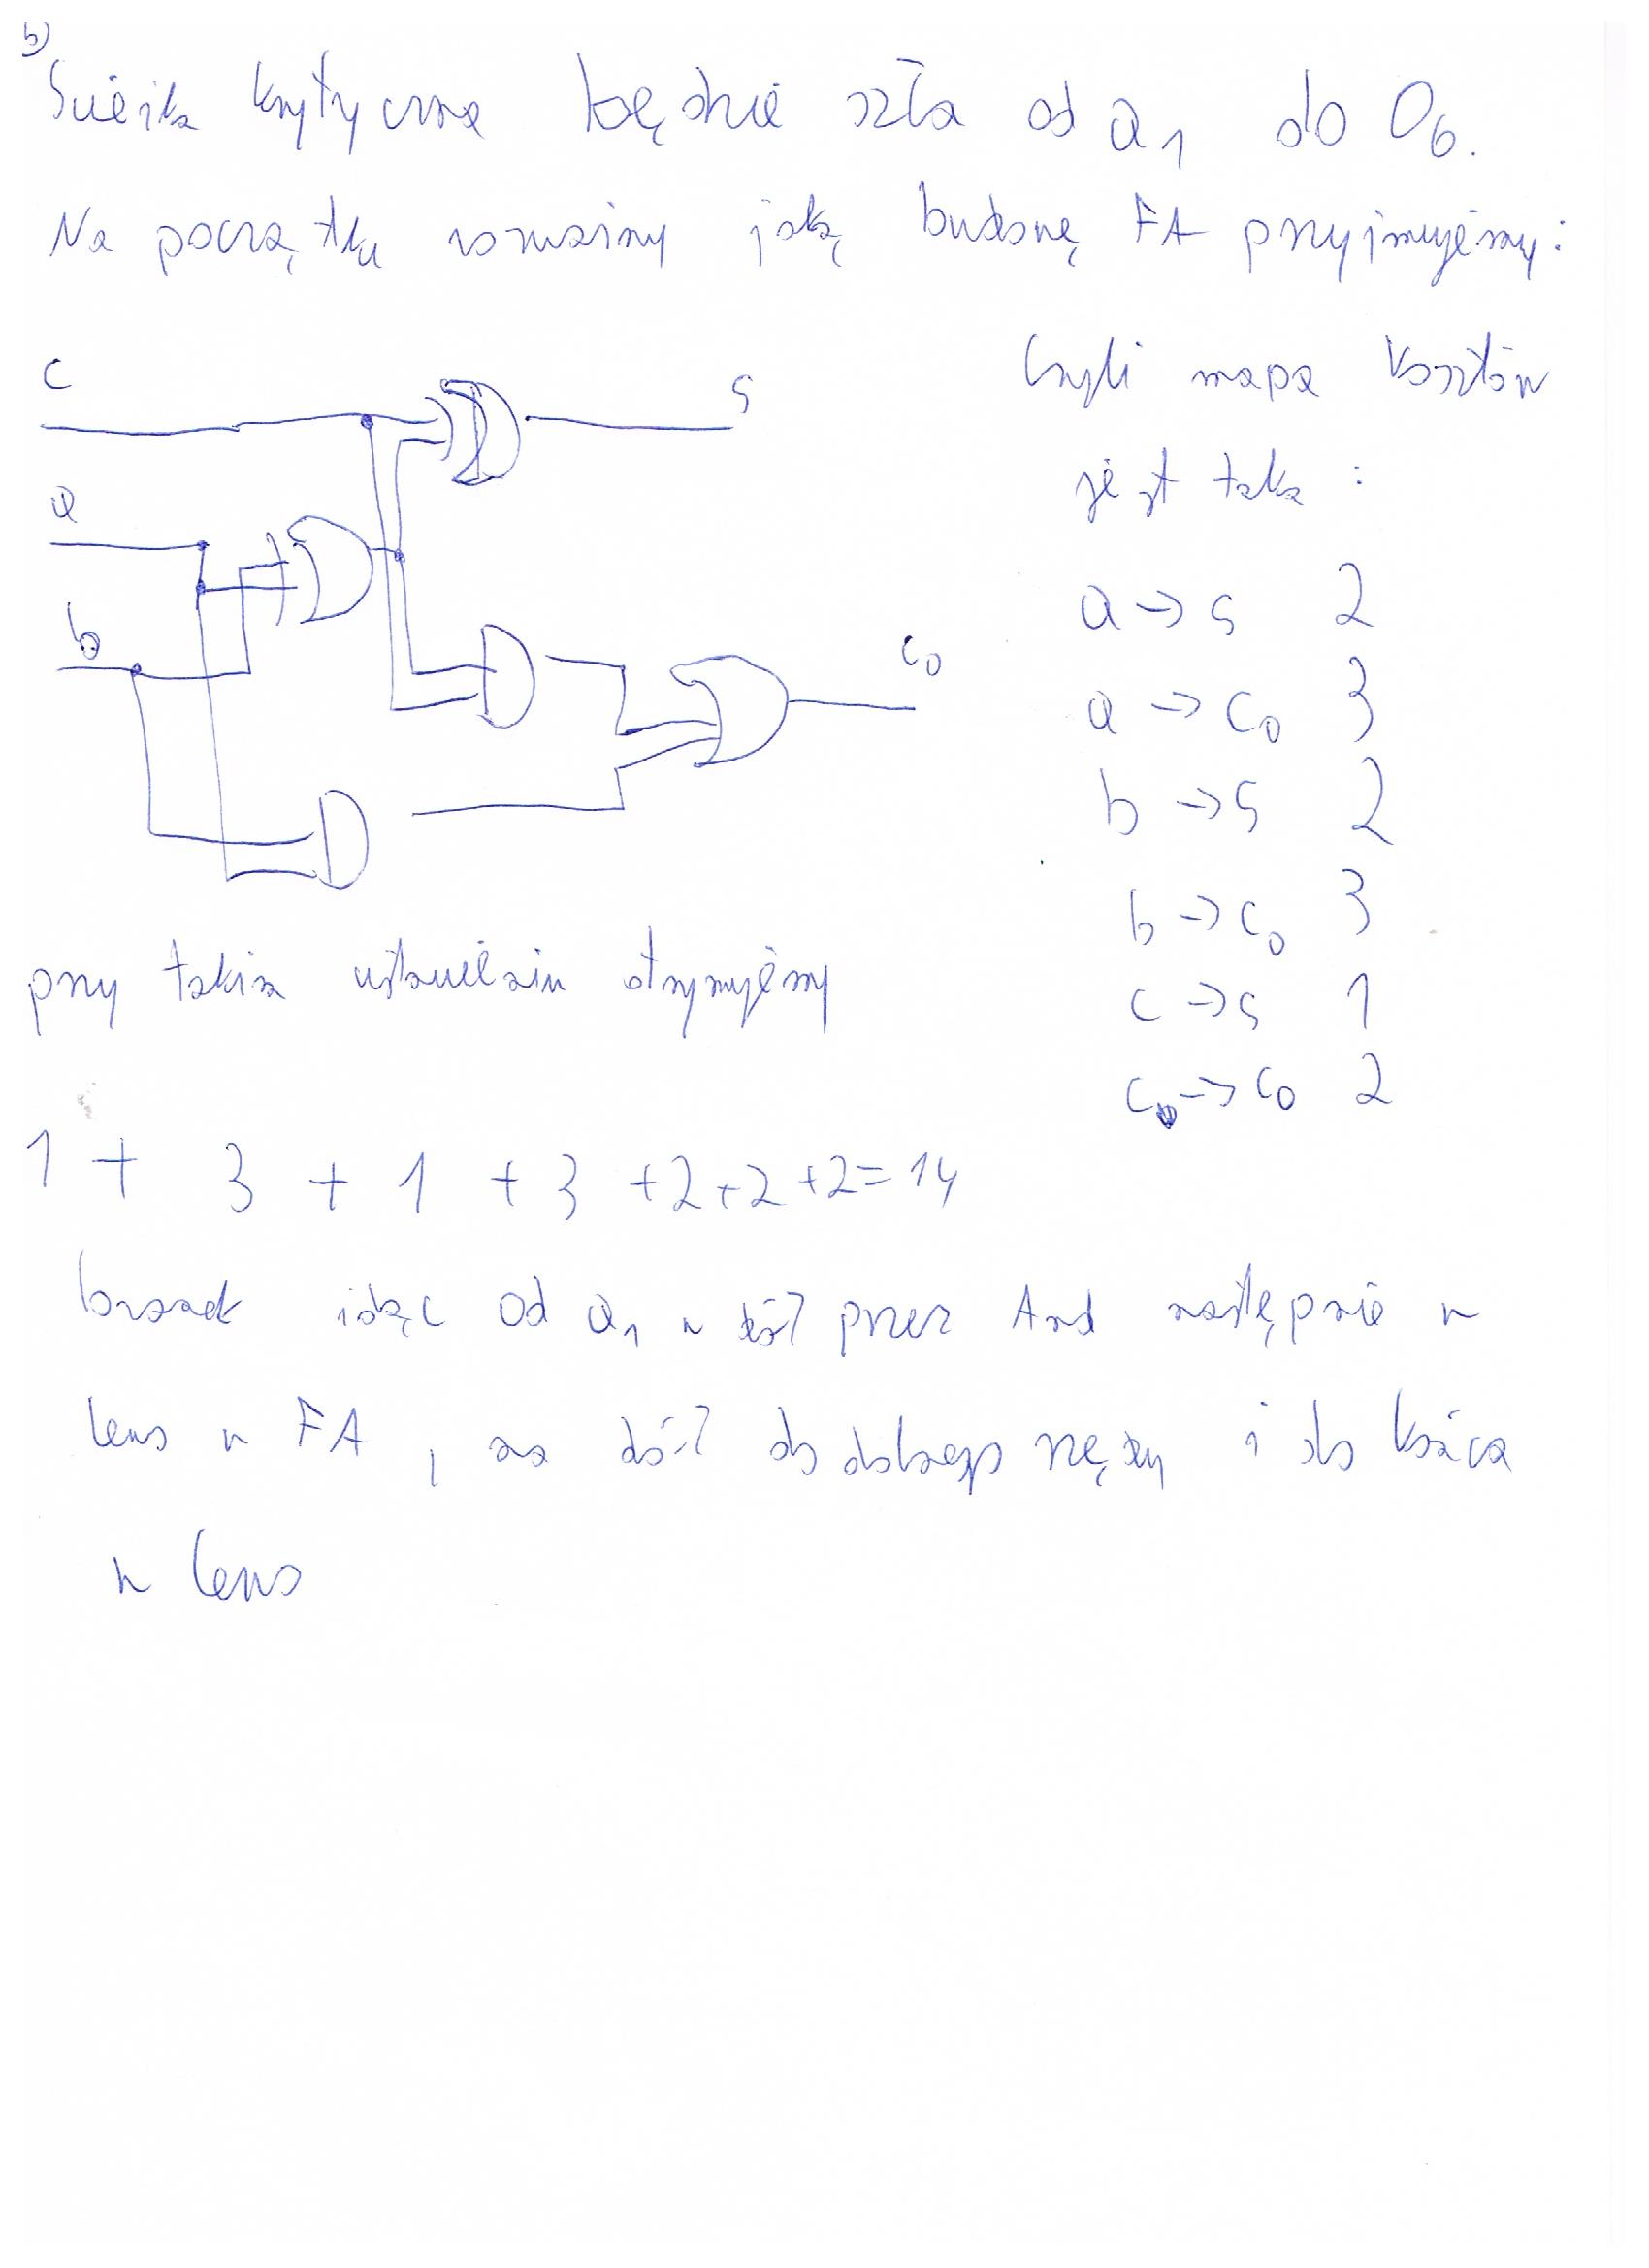 b)
Ścieżka krytyczna będzie szła od a1 do O6.
Na początku rozważmy jaką budowę FA przyjmujemy:
c
s
a
b
c0
Czyli mapa kosztów
jest taka:
a -> s 2
a -> c0 3
b -> s 2
b -> c0 3
c -> s 1
c -> c0 2
przy takim ustawieniu otrzymujemy
1 + 3 + 1 + 3 + 2 + 2 + 2 = 14
bramek idąc od a1 w dół przez And następnie w
lewo w FA, na dół do dolnego rzędu i do końca
w lewo